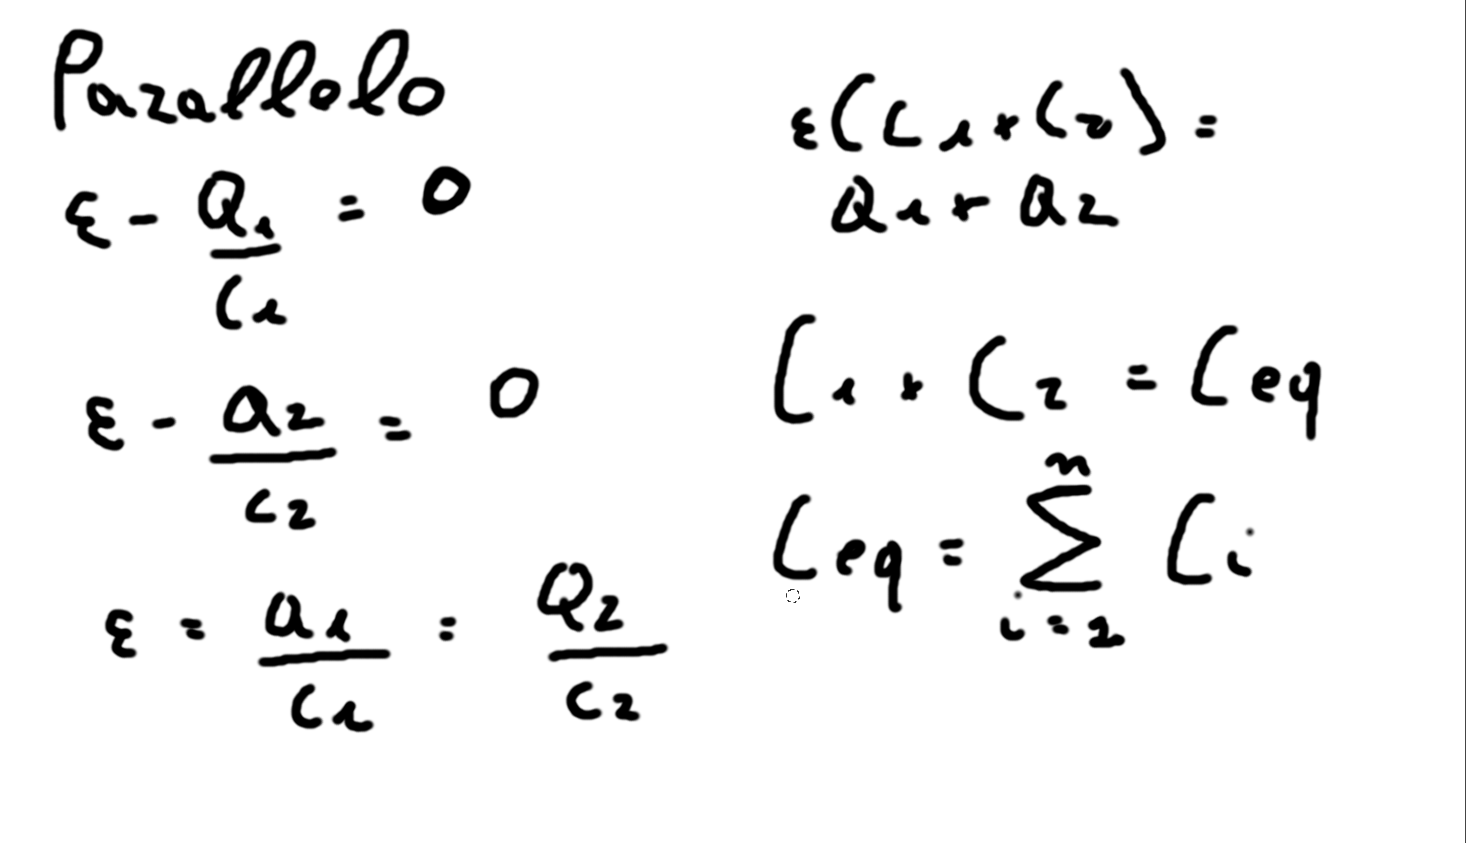 Parallelo
ε - Q₁/C₁ = 0
ε - Q₂/C₂ = 0
ε = Q₁/C₁ = Q₂/C₂
ε(C₁ + C₂) =
Q₁ + Q₂
C₁ + C₂ = Ceq
Ceq = ∑ⁿᵢ₌₁ Cᵢ